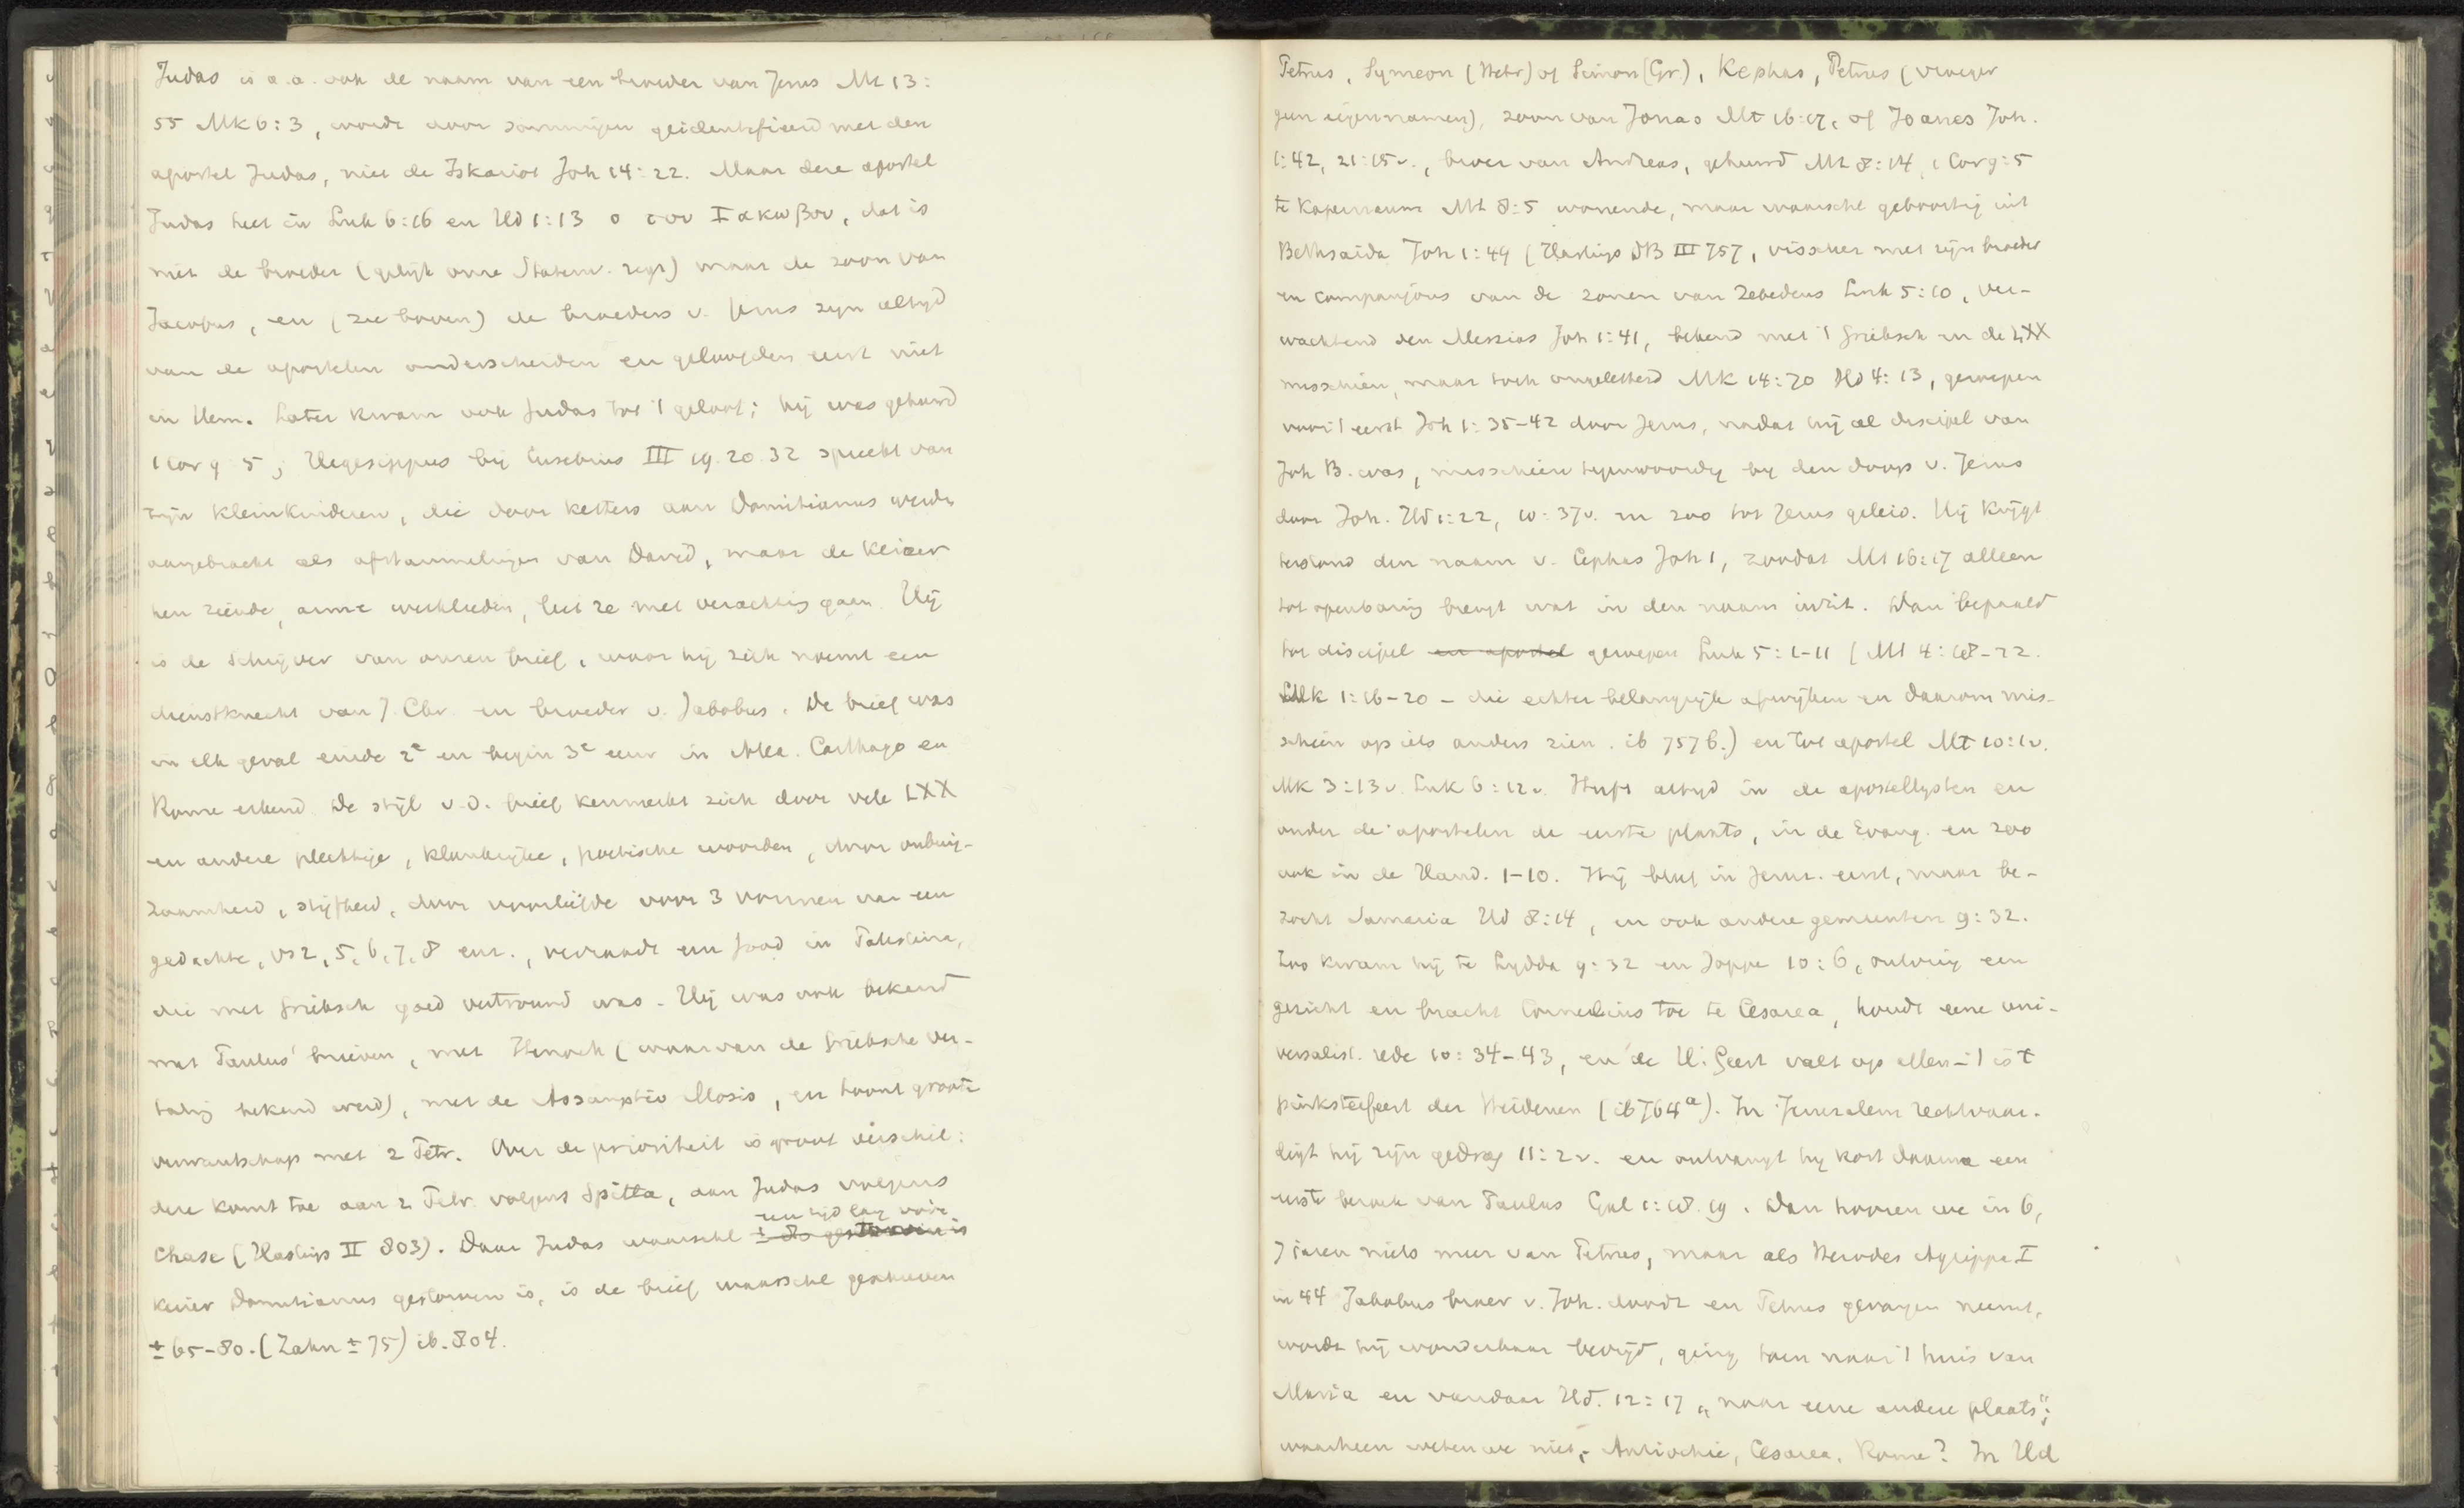 Judas is o.a. ook de naam van een broeder van Jezus Mt 13:
55 Mk 6:3, wordt door sommigen geidentificeerd met den
apostel Judas, niet de Iskariot Joh 14:22. Maar deze apostel
Judas heet in Luk 6:16 en Hd 1:13 ο του Ιακωβου, dat is
niet de broeder (gelijk onze Statenv. zegt) maar de zoon van
Jacobus, en (zie boven) de broeders v. Jezus zijn altijd
van de apostelen onderscheiden en geloofden eerst niet
in Hem. Later kwam ook Judas tot 't geloof; hij was gehuwd
1 Cor 9 5; Hegesippus bij Eusebius III 19.20.32 spreekt van
zijn kleinkinderen, die door ketters aan Domitianus werden
aangebracht als afstammelingen van David, maar de Keizer
hen ziende, arme werklieden, liet ze met verachting gaan. Hij
is de schrijver van onzen brief, waar hij zich noemt een
dienstknecht van J. Chr. en broeder v. Jakobus. De brief was
in elk geval einde 2e en begin 3e eeuw in Alex. Carthago en
Rome erkend. De stijl v.d. brief kenmerkt zich door vele LXX
en andere plechtige, klankrijke, poëtische woorden, door onbuig-
zaamheid, stijfheid, door voorliefde voor 3 vormen van een
gedachte, vs 2, 5, 6, 7, 8 enz., verraadt een Jood in Palestina,
die met Grieksch goed vertrouwd was. Hij was ook bekend
met Paulus' brieven, met Henoch (waarvan de Grieksche ver-
taling bekend werd), met de Assumptio Mosis, en toont groote
verwantschap met 2 Petr. Over de prioriteit is groot verschil:
deze komt toe aan 2 Petr. volgens Spitta, aan Judas volgens
een tijd lang vóór
Chase (Hastings II 803). Daar Judas waarschl ± 80 gestorven is
keizer Domitianus gestorven is, is de brief waarschl geschreven
± 65-80. (Zahn ± 75) ib. 804.
Petrus, Symeon (Hebr) of Simon (Gr.), Kephas, Petrus (vroeger
geen eigennamen), zoon van Jonas Mt 16:17, of Joanes Joh.
1:42, 21:15v., broer van Andreas, gehuwd Mt 8:14, 1 Cor 9:5
te Kapernaum Mt 8:5 wonende, maar waarschl geboortig uit
Bethsaida Joh 1:44 (Hastings DB III 757, visscher met zijn broeder
en compagnons van de zonen van Zebedeus Luk 5:10, ver-
wachtend den Messias Joh 1:41, bekend met 't Grieksch en de LXX
misschien, maar toch ongeletterd Mk 14:70 Hd 4:13, geroepen
voor 't eerst Joh 1:35-42 door Jezus, nadat hij al discipel van
Joh B. was, misschien tegenwoordig bij den doop v. Jezus
door Joh. Hd 1:22, 10:37v. en zoo tot Jezus geleid. Hij krijgt
terstond den naam v. Cephas Joh 1, zoodat Mt 16:17 alleen
tot openbaring brengt wat in den naam inzit. Dan bepaald
tot discipel en apostel geroepen Luk 5:1-11 (Mt 4:18-22.
Mk 1:16-20 - die echter belangrijk afwijken en daarom mis-
schien op iets anders zien. ib 757 b.) en tot apostel Mt 10:1v.
Mk 3:13v. Luk 6:12v. Heeft altijd in de apostellijsten en
onder de apostelen de eerste plaats, in de Evang. en zoo
ook in de Hand. 1-10. Hij bleef in Jeruz. eerst, maar be-
zocht Samaria Hd 8:14, en ook andere gemeenten 9:32.
Zoo kwam hij te Lydda 9:32 en Joppe 10:6, ontving een
gezicht en bracht Cornelius toe te Cesarea, houdt eene uni-
versalist. rede 10:34-43, en de H. Geest valt op allen - 't is 't
pinksterfeest der Heidenen (ib 764a). In Jeruzalem rechtvaar-
digt hij zijn gedrag 11:2v. en ontvangt hij kort daarna een
eerste bezoek van Paulus Gal 1:18.19. Dan hooren we in 6,
7 jaren niets meer van Petrus, maar als Herodes Agrippa I
in 44 Jakobus broer v. Joh. doodt en Petrus gevangen neemt,
wordt hij wonderbaar bevrijd, ging toen naar 't huis van
Maria en vandaar Hd. 12:17 „naar eene andere plaats";
waarheen weten we niet, Antiochie, Cesarea, Rome? In Hd